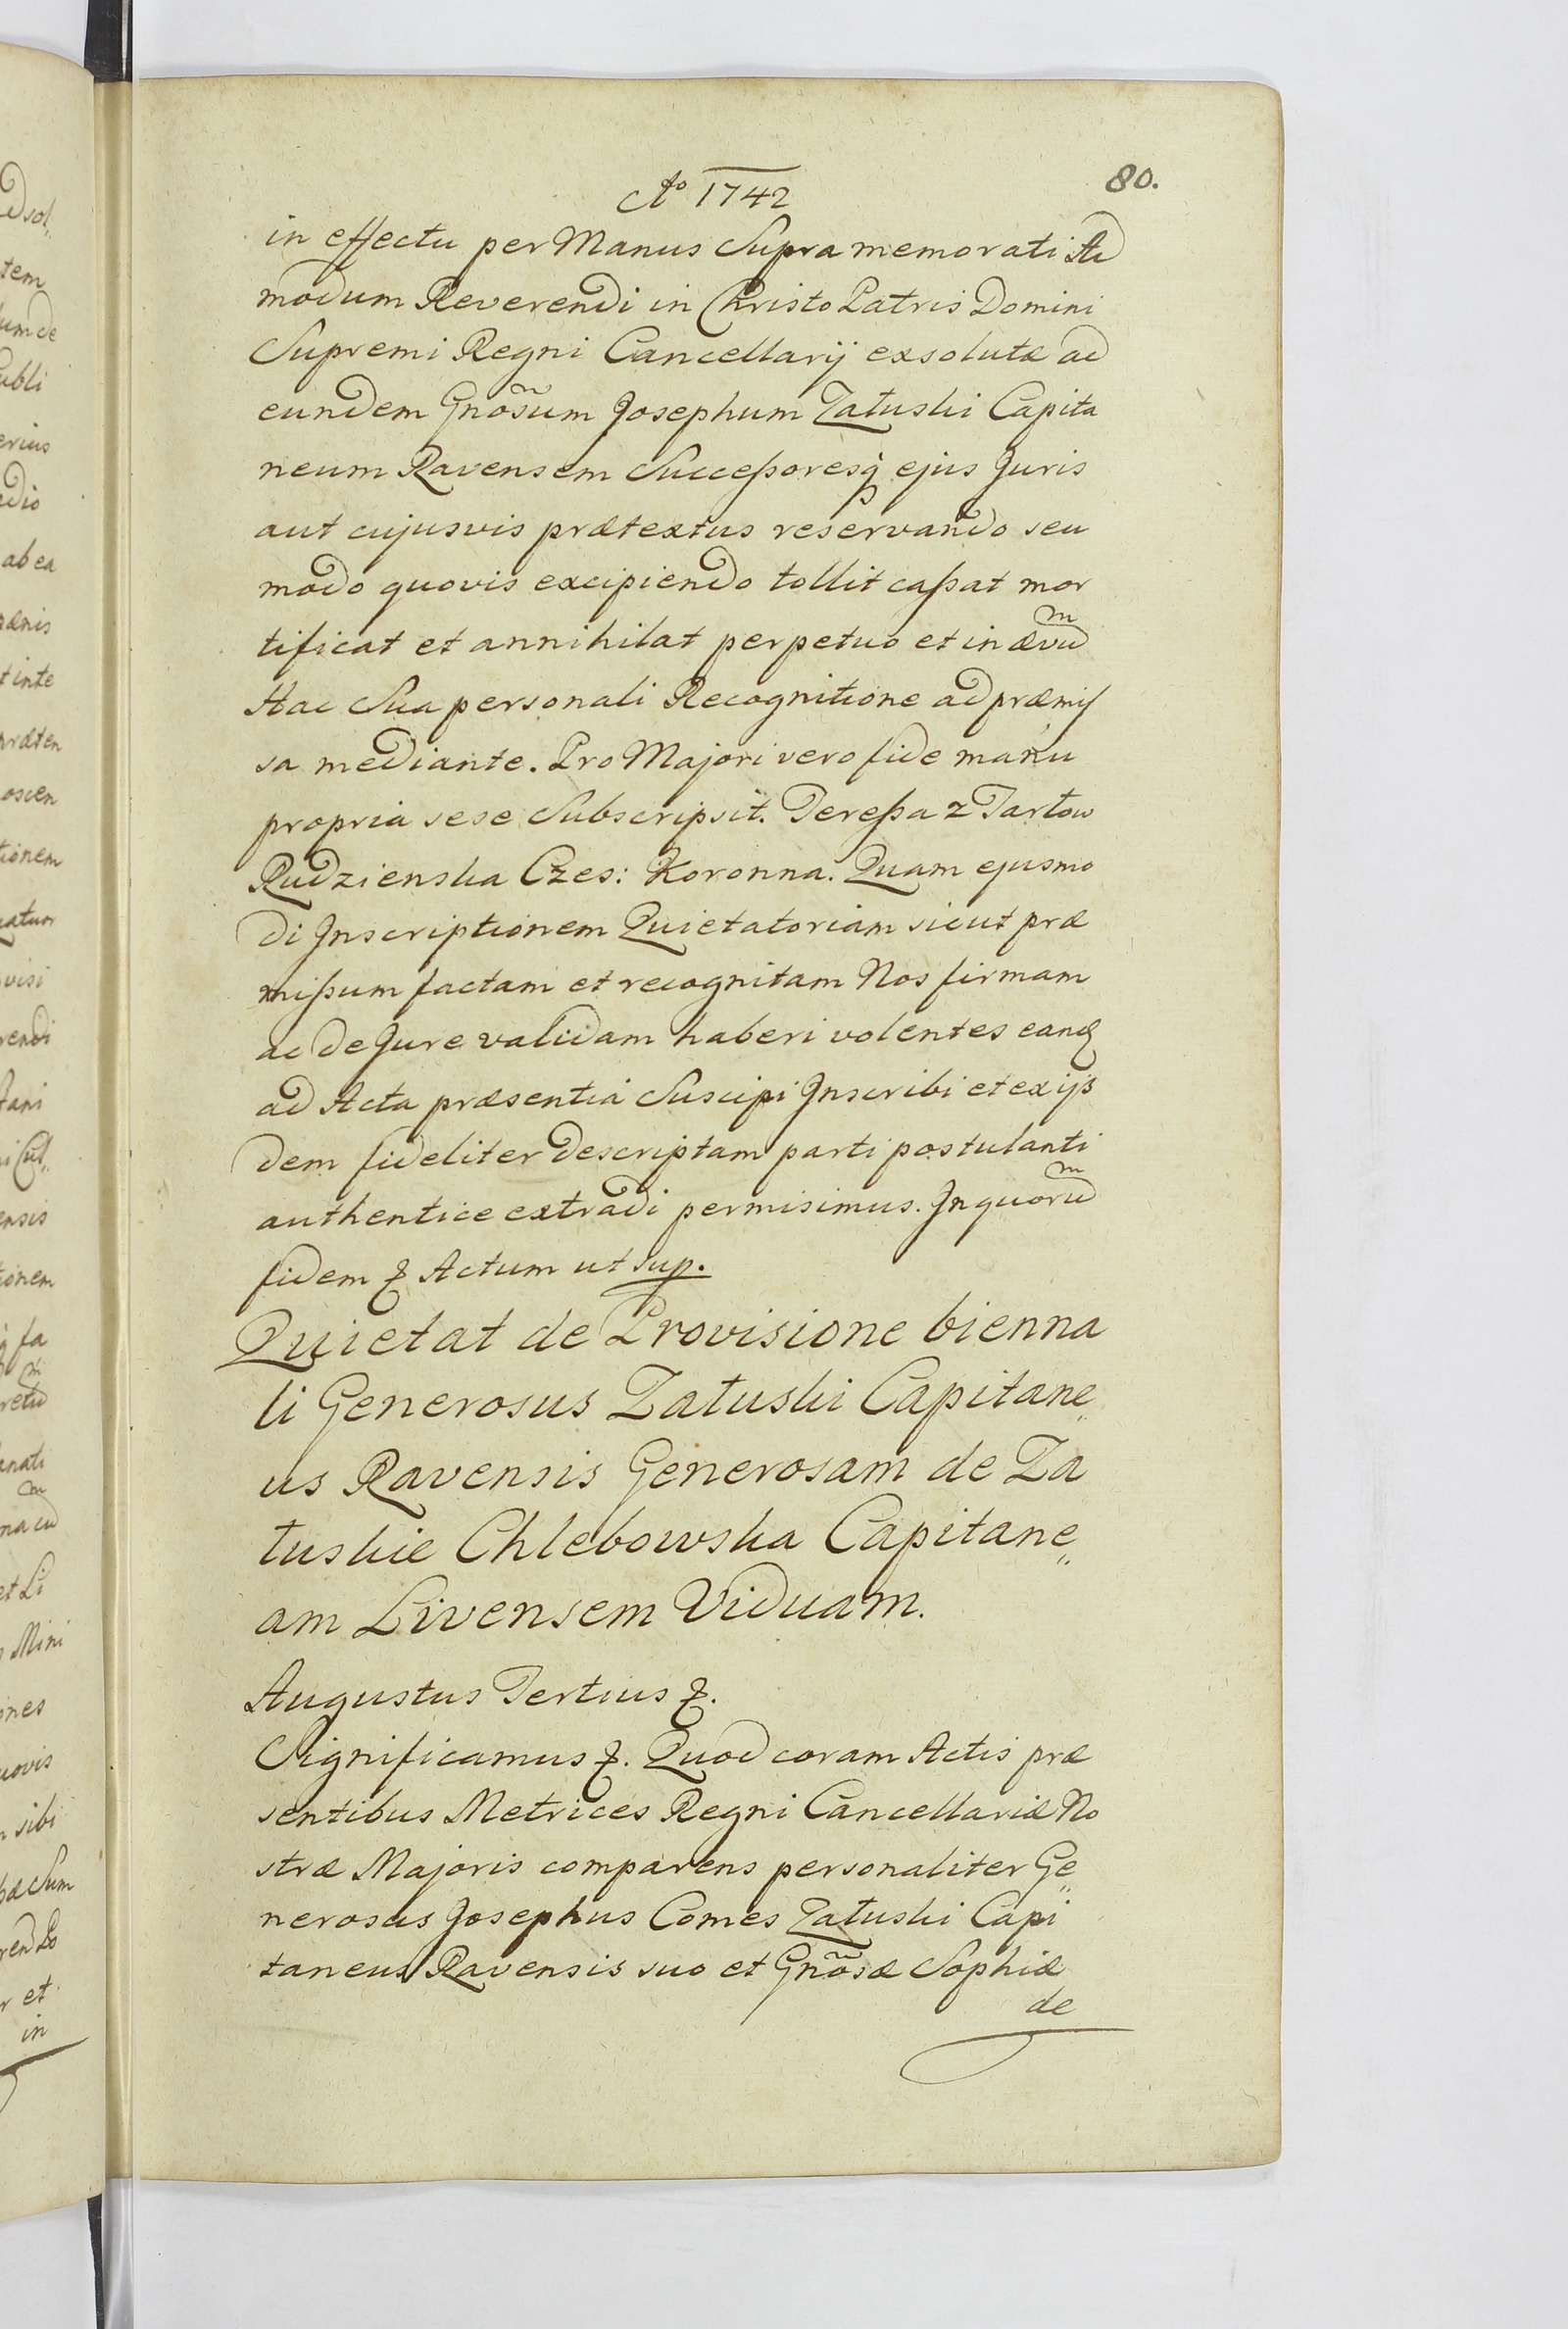 80.
Aº 1742
in effectu per Manus Supra memorati Ad
modum Reverendi in Christo Patris Domini
Supremi Regni Cancellarij exsolutæ ad
eundem Gnõsum Josephum Załuski Capita
neum Ravensem Successoresq ejus Juris
aut cujusvis prætextus reservando seu
modo quovis excipiendo tollit cassat mor
tificat et annihilat perpetuo et in ævum
Hac Sua personali Recognitione ad præmis
sa mediante. Pro Majori vero fide manu
propria sese Subscripsit. Teressa z Tarłow
Rudzienska Czes: Koronna. Quam ejusmo
di Inscriptionem Quietatoriam sicut præ
missum factam et recognitam Nos firmam
ac de Jure validam haberi volentes eanq
ad Acta præsentia Suscipi Inscribi et ex ijs
dem fideliter descriptam parti postulanti
authentice extradi permisimus. In quorum
fidem & Actum ut sup.
Quietat de Provisione bienna
li Generosus Załuski Capitane„
us Ravensis Generosam de Za
łuskie Chlebowska Capitane„
am Livensem Viduam.
Augustus Tertius &.
Significamus &. Quod coram Actis præ
sentibus Metrices Regni Cancellariæ No
stræ Majoris comparens personaliter Ge„
nerosus Josephus Comes Załuski Capi
taneus Ravensis suo et Gnõsæ Sophiæ
de